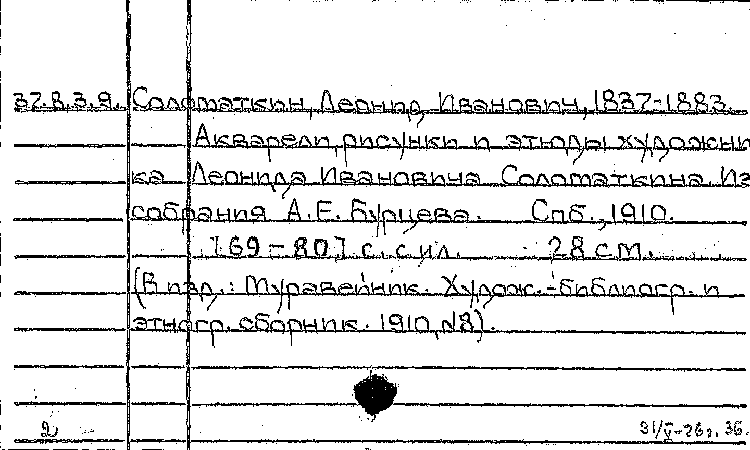 37.8.3.9. Соломаткин, Леонид Иванович, 1837-1883.
Акварели, рисунки и этюды художни
ка Леонида Ивановича Соломаткина. Из
собрания А.Е. Бурцева. Спб., 1910.
[69-80] с. с ил. 28 см.
(В изд.: Муравейник. Худож.-библиогр. и
этногр. сборник. 1910, №8).
2